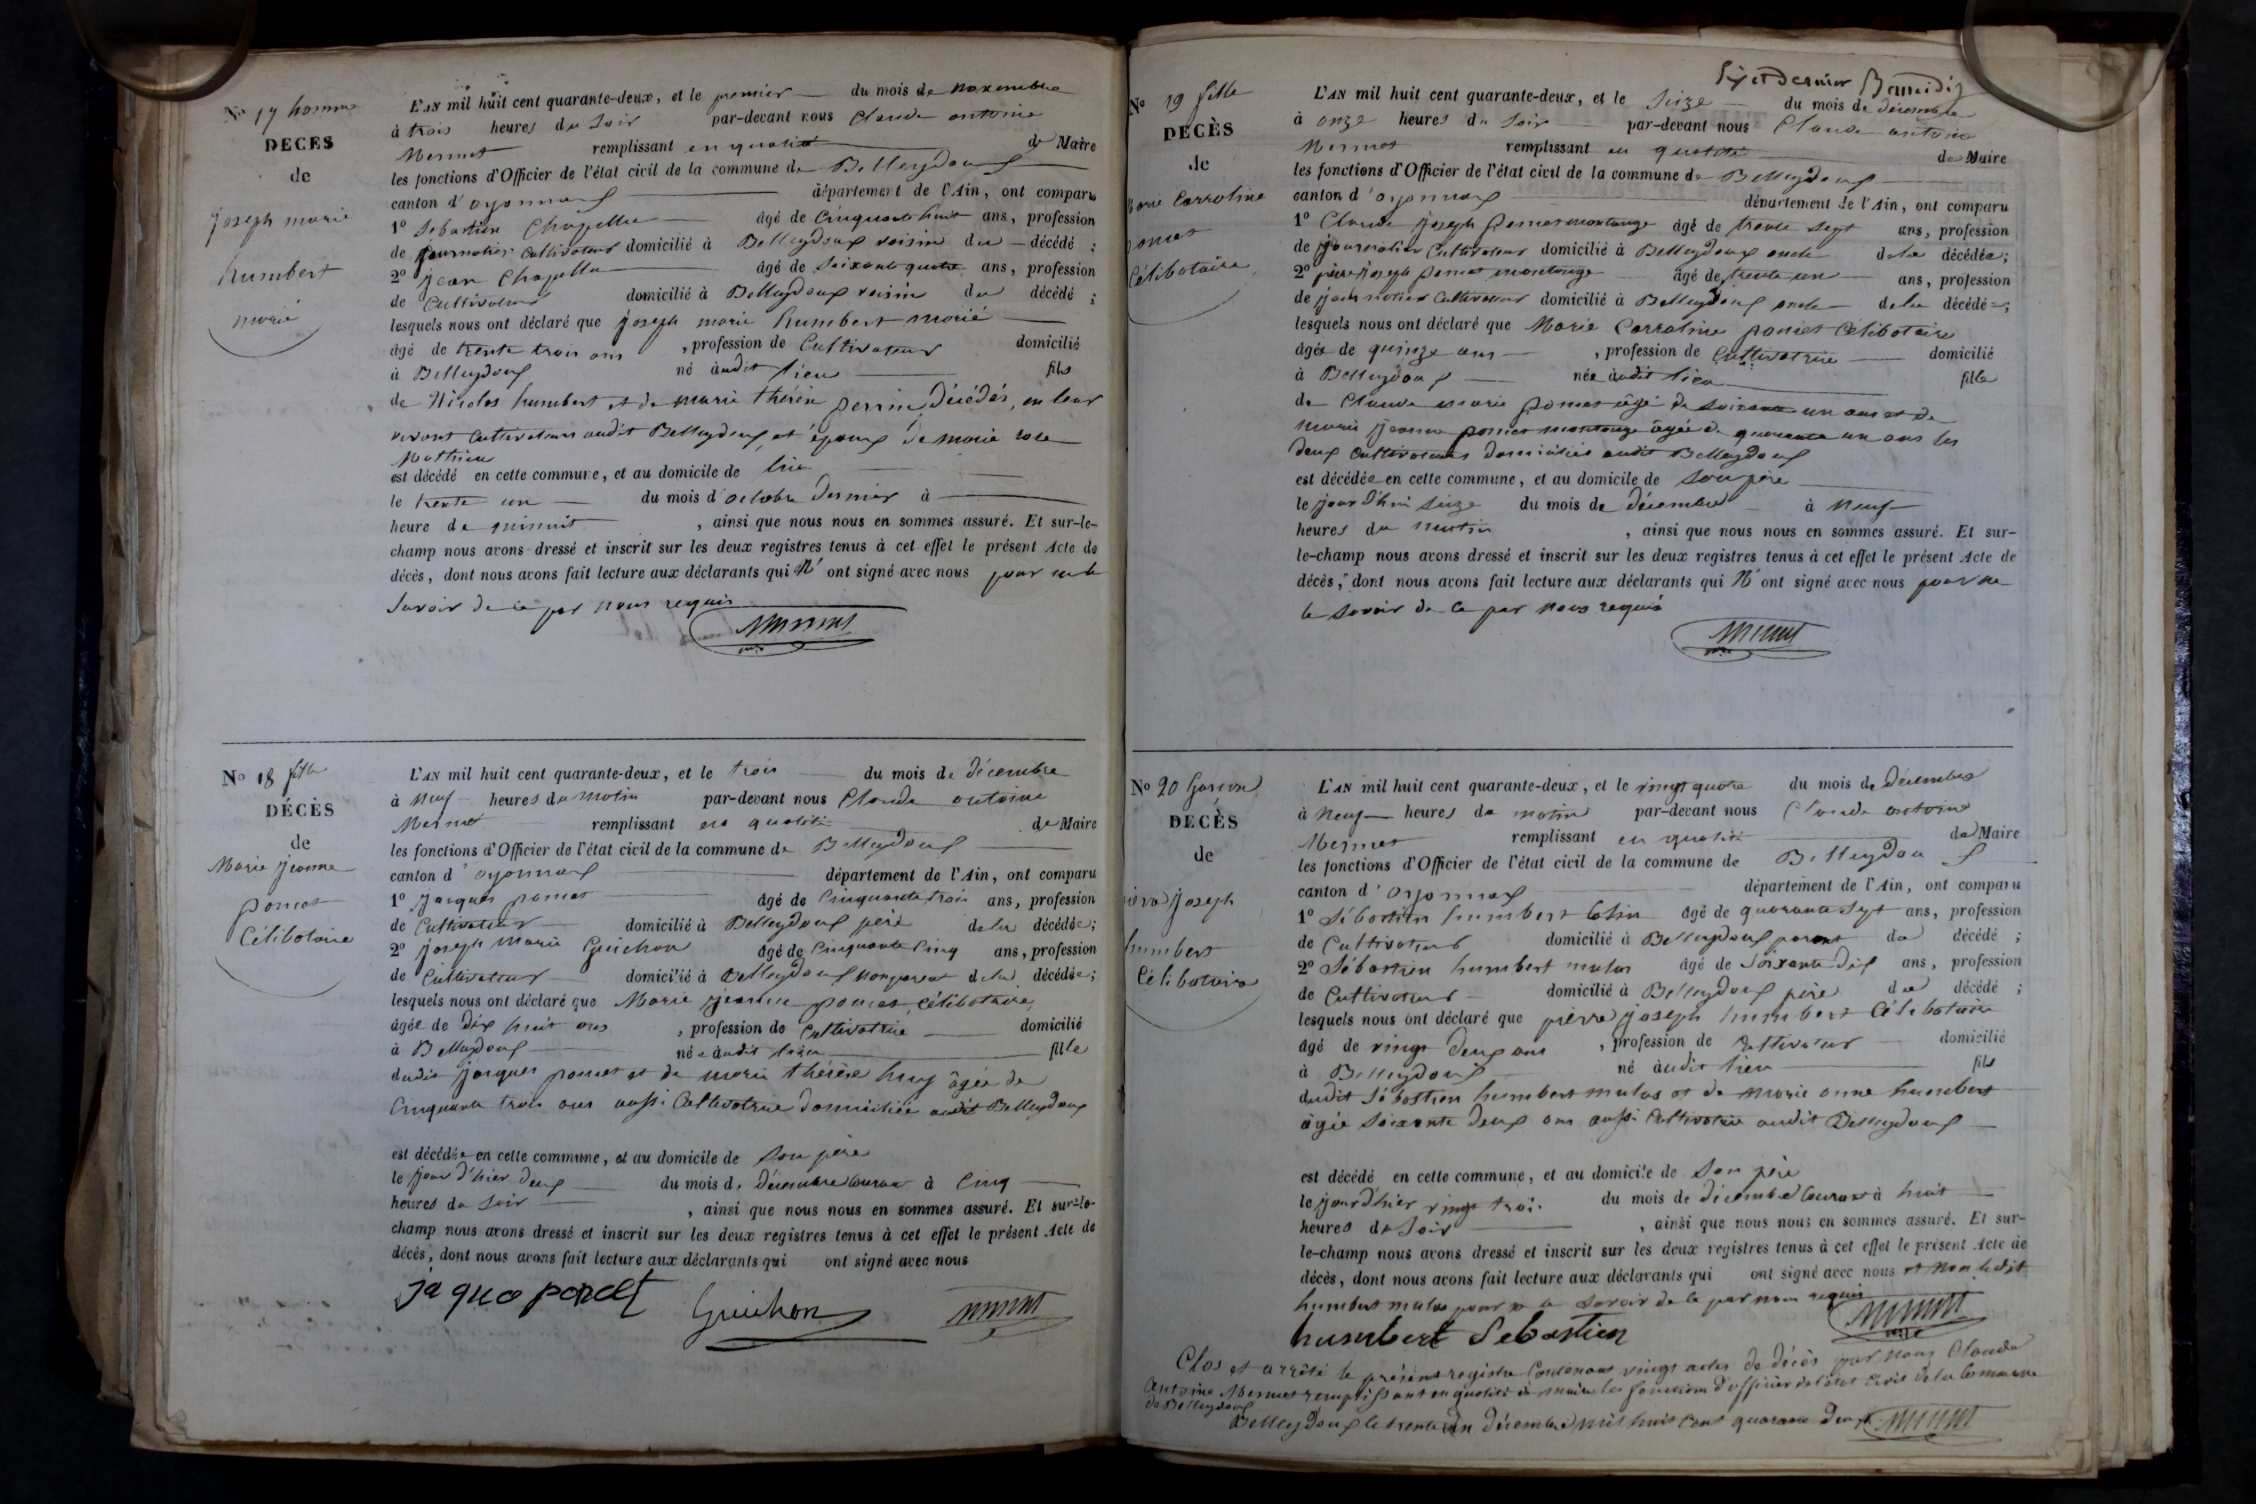 N° 17 homme
DÉCÈS
de
joseph marie
humbert
marié
L'AN mil huit cent quarante-deux, et le premier du mois de novembre
à trois heures du soir par-devant nous Claude antoine
Mermet remplissant en qualité de Maire
les fonctions d'Officier de l'état civil de la commune de Belleydoux
canton d'oyonnax département de l'Ain, ont comparu
1° Sébastien Chapelle âgé de Cinquante huit ans, profession
de journalier Cultivateur domicilié à Belleydoux voisin du décédé ;
2° jean Chapelle âgé de soixante quatre ans, profession
de Cultivateur domicilié à Belleydoux voisin du décédé ;
lesquels nous ont déclaré que joseph marie humbert marié
âgé de trente trois ans, profession de Cultivateur domicilié
à Belleydoux né audit lieu fils
de Nicolas humbert et de marie thérèse perrin, décédés, en leur
vivant Cultivateurs audit Belleydoux, et époux de marie rose
Mathieu
est décédé en cette commune, et au domicile de lui
le trente un du mois d'octobre dernier à
heure de minuit, ainsi que nous nous en sommes assuré. Et sur-le-
champ nous avons dressé et inscrit sur les deux registres tenus à cet effet le présent Acte de
décès, dont nous avons fait lecture aux déclarants qui N'ont signé avec nous pour ne le
savoir de ce par nous requis
Mermet
N° 18 fille
DÉCÈS
de
Marie jeanne
poncet
Célibataire
L'AN mil huit cent quarante-deux, et le trois du mois de décembre
à neuf heures du matin par-devant nous Claude antoine
Mermet remplissant en qualité de Maire
les fonctions d'Officier de l'état civil de la commune de Belleydoux
canton d'oyonnax département de l'Ain, ont comparu
1° jacques poncet âgé de Cinquante trois ans, profession
de Cultivateur domicilié à Belleydoux père de la décédée ;
2° joseph Marie Guichon âgé de Cinquante Cinq ans, profession
de Cultivateur domicilié à Belleydoux non parent de la décédée ;
lesquels nous ont déclaré que Marie jeanne poncet, Célibataire,
âgée de dix huit ans, profession de Cultivatrice domicilié
à Belleydoux née audit lieu fille
dudit jacques poncet et de marie thérèse humg âgée de
Cinquante trois ans aussi Cultivatrice domiciliée audit Belleydoux
est décédée en cette commune, et au domicile de son père
le jour d'hier deux du mois de décembre courant à Cinq
heures du soir, ainsi que nous nous en sommes assuré. Et sur-le-
champ nous avons dressé et inscrit sur les deux registres tenus à cet effet le présent Acte de
décès, dont nous avons fait lecture aux déclarants qui ont signé avec nous
Jaque poncet Guichon Mermet
Six et Dernier
N° 19 fille
DÉCÈS
de
Marie Carroline
poncet
Célibataire
L'AN mil huit cent quarante-deux, et le seize du mois de décembre
à onze heures du soir par-devant nous Claude antoine
Mermet remplissant en qualité de Maire
les fonctions d'Officier de l'état civil de la commune de Belleydoux
canton d'oyonnax département de l'Ain, ont comparu
1° Claude joseph poncet montange âgé de trente sept ans, profession
de journalier Cultivateur domicilié à Belleydoux oncle de la décédée ;
2° pierre joseph poncet montange âgé de trente un ans, profession
de journalier Cultivateur domicilié à Belleydoux oncle de la décédée ;
lesquels nous ont déclaré que Marie Carroline poncet Célibataire
âgée de quinze ans, profession de Cultivatrice domicilié
à Belleydoux née audit lieu fille
de Claude marie poncet âgé de soixante un ans et de
marie jeanne poncet montange âgée de quarante un ans les
deux Cultivateurs domiciliés audit Belleydoux
est décédée en cette commune, et au domicile de son père
le jour d'hui seize du mois de décembre à neuf
heures du matin, ainsi que nous nous en sommes assuré. Et sur-
le-champ nous avons dressé et inscrit sur les deux registres tenus à cet effet le présent Acte de
décès, dont nous avons fait lecture aux déclarants qui N'ont signé avec nous pour ne
le savoir de ce par nous requis
Mermet
N° 20 Garçon
DÉCÈS
de
pierre joseph
humbert
Célibataire
L'AN mil huit cent quarante-deux, et le vingt quatre du mois de décembre
à neuf heures du matin par-devant nous Claude antoine
Mermet remplissant en qualité de Maire
les fonctions d'Officier de l'état civil de la commune de Belleydoux
canton d'oyonnax département de l'Ain, ont comparu
1° Sébastien humbert Colin âgé de quarante sept ans, profession
de Cultivateur domicilié à Belleydoux parent du décédé ;
2° Sébastien humbert mulas âgé de soixante dix ans, profession
de Cultivateur domicilié à Belleydoux père du décédé ;
lesquels nous ont déclaré que pierre joseph humbert Célibataire
âgé de vingt deux ans, profession de Cultivateur domicilié
à Belleydoux né audit lieu fils
dudit Sébastien humbert mulas et de marie anne humbert
âgée soixante deux ans aussi Cultivatrice audit Belleydoux
est décédé en cette commune, et au domicile de son père
le jour d'hier vingt trois du mois de décembre courant à huit
heures du soir, ainsi que nous nous en sommes assuré. Et sur-
le-champ nous avons dressé et inscrit sur les deux registres tenus à cet effet le présent Acte de
décès, dont nous avons fait lecture aux déclarants qui ont signé avec nous et non ledit
humbert mulas pour ne le savoir de ce par nous requis
Mermet
humbert Sebastien
Clos et arrêté le présent registre Contenant vingt actes de décès par nous Claude
Antoine Mermet remplissant en qualité de maire les fonctions d'officier de l'état civil de la Commune
de Belleydoux
Belleydoux le trente un décembre mil huit cent quarante deux Mermet